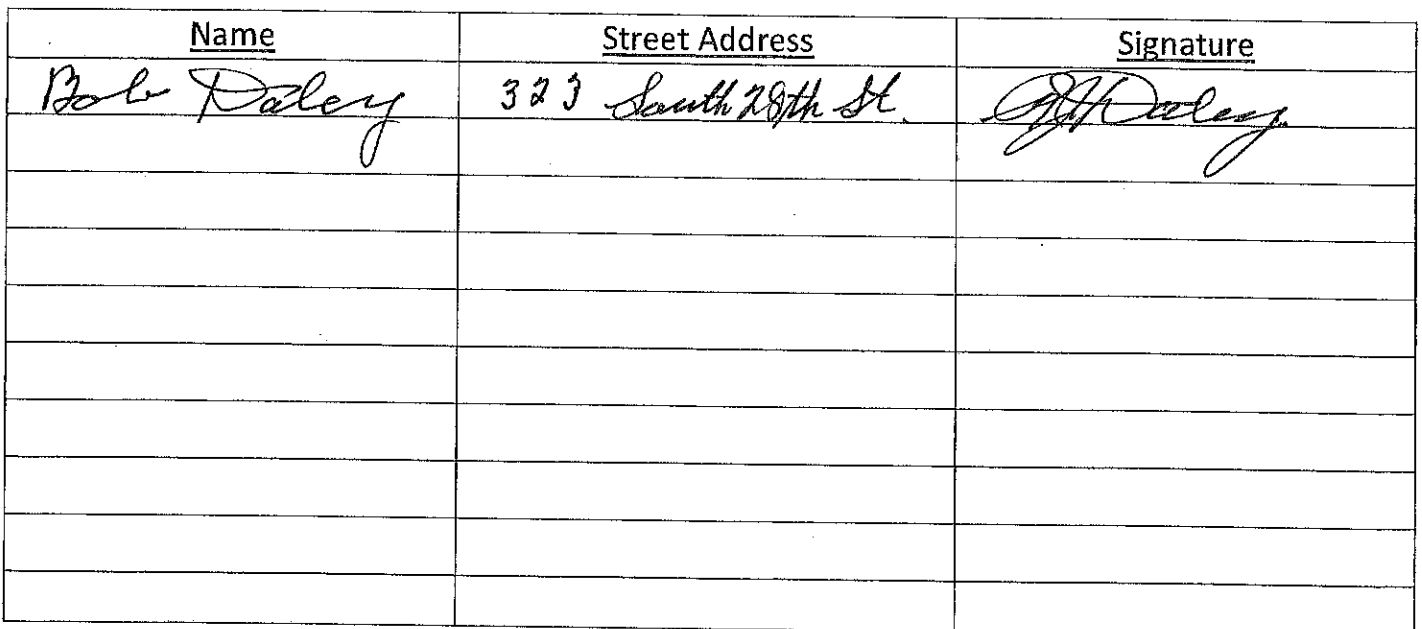 Name Street Address Signature
Bob Daley 323 South 28th St. Daley